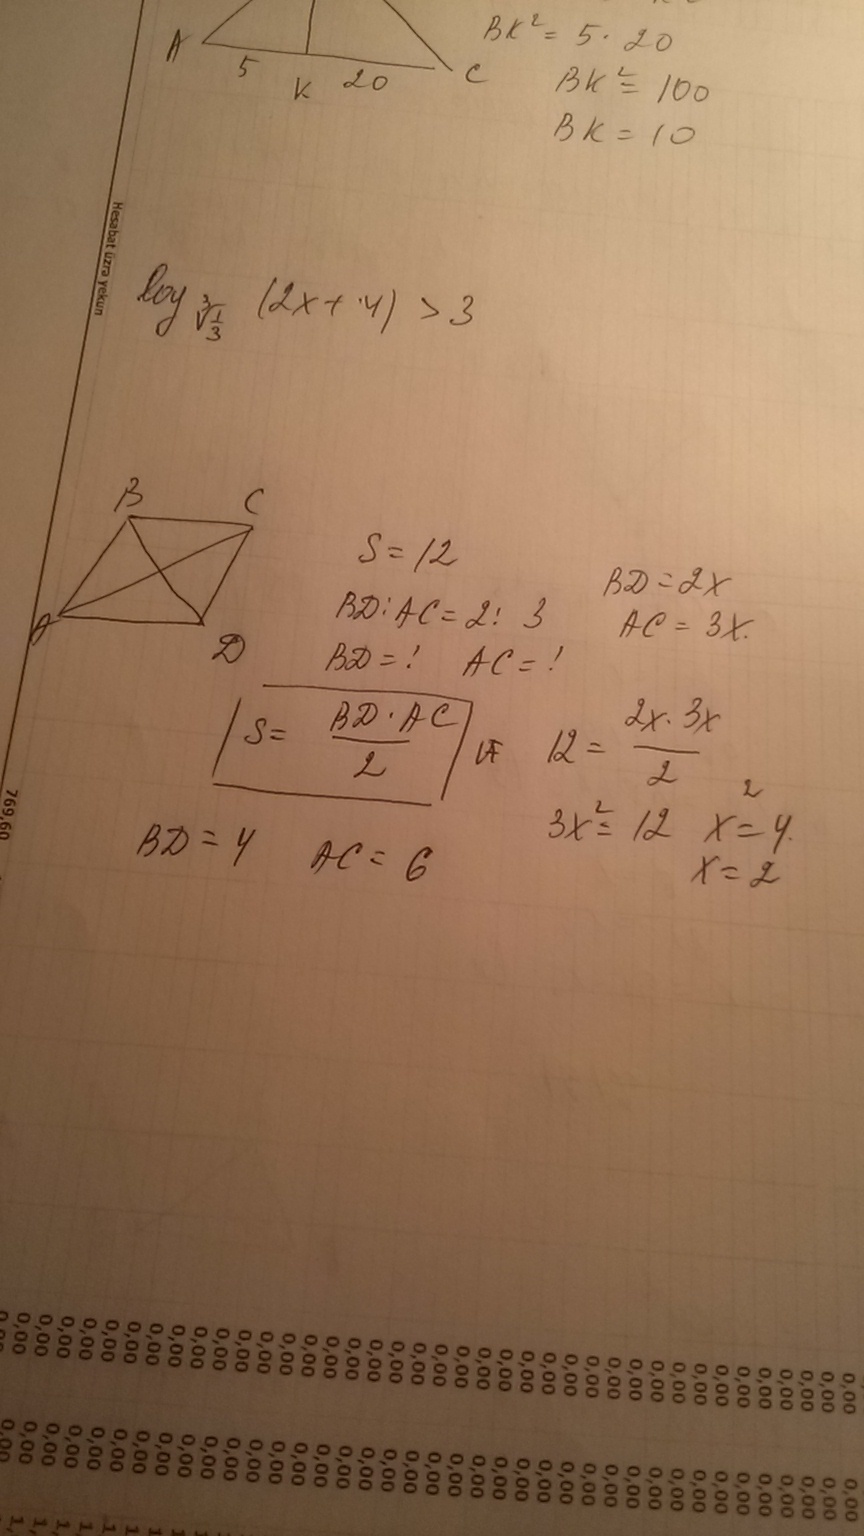 BK² = 5 · 20
A
5
K
20
C
BK² = 100
BK = 10
Hesabat üzrə yekun
log ∛(1/3) (2x + 4) > 3
B
C
A
D
S = 12
BD : AC = 2 : 3
BD = ! AC = !
BD = 2x
AC = 3x.
S = BD · AC / 2
12 = 2x · 3x / 2
3x² = 12 x² = 4.
x = 2
BD = 4 AC = 6
769,60
0,00 0,00 0,00 0,00 0,00 0,00 0,00 0,00 0,00 0,00 0,00 0,00 0,00 0,00 0,00 0,00 0,00 0,00 0,00 0,00 0,00 0,00 0,00 0,00 0,00 0,00 0,00 0,00 0,00 0,00 0,00 0,00 0,00 0,00 0,00 0,00 0,00 0,00
0,00 0,00 0,00 0,00 0,00 0,00 0,00 0,00 0,00 0,00 0,00 0,00 0,00 0,00 0,00 0,00 0,00 0,00 0,00 0,00 0,00 0,00 0,00 0,00 0,00 0,00 0,00 0,00 0,00 0,00 0,00 0,00 0,00 0,00 0,00 0,00 0,00 0,00